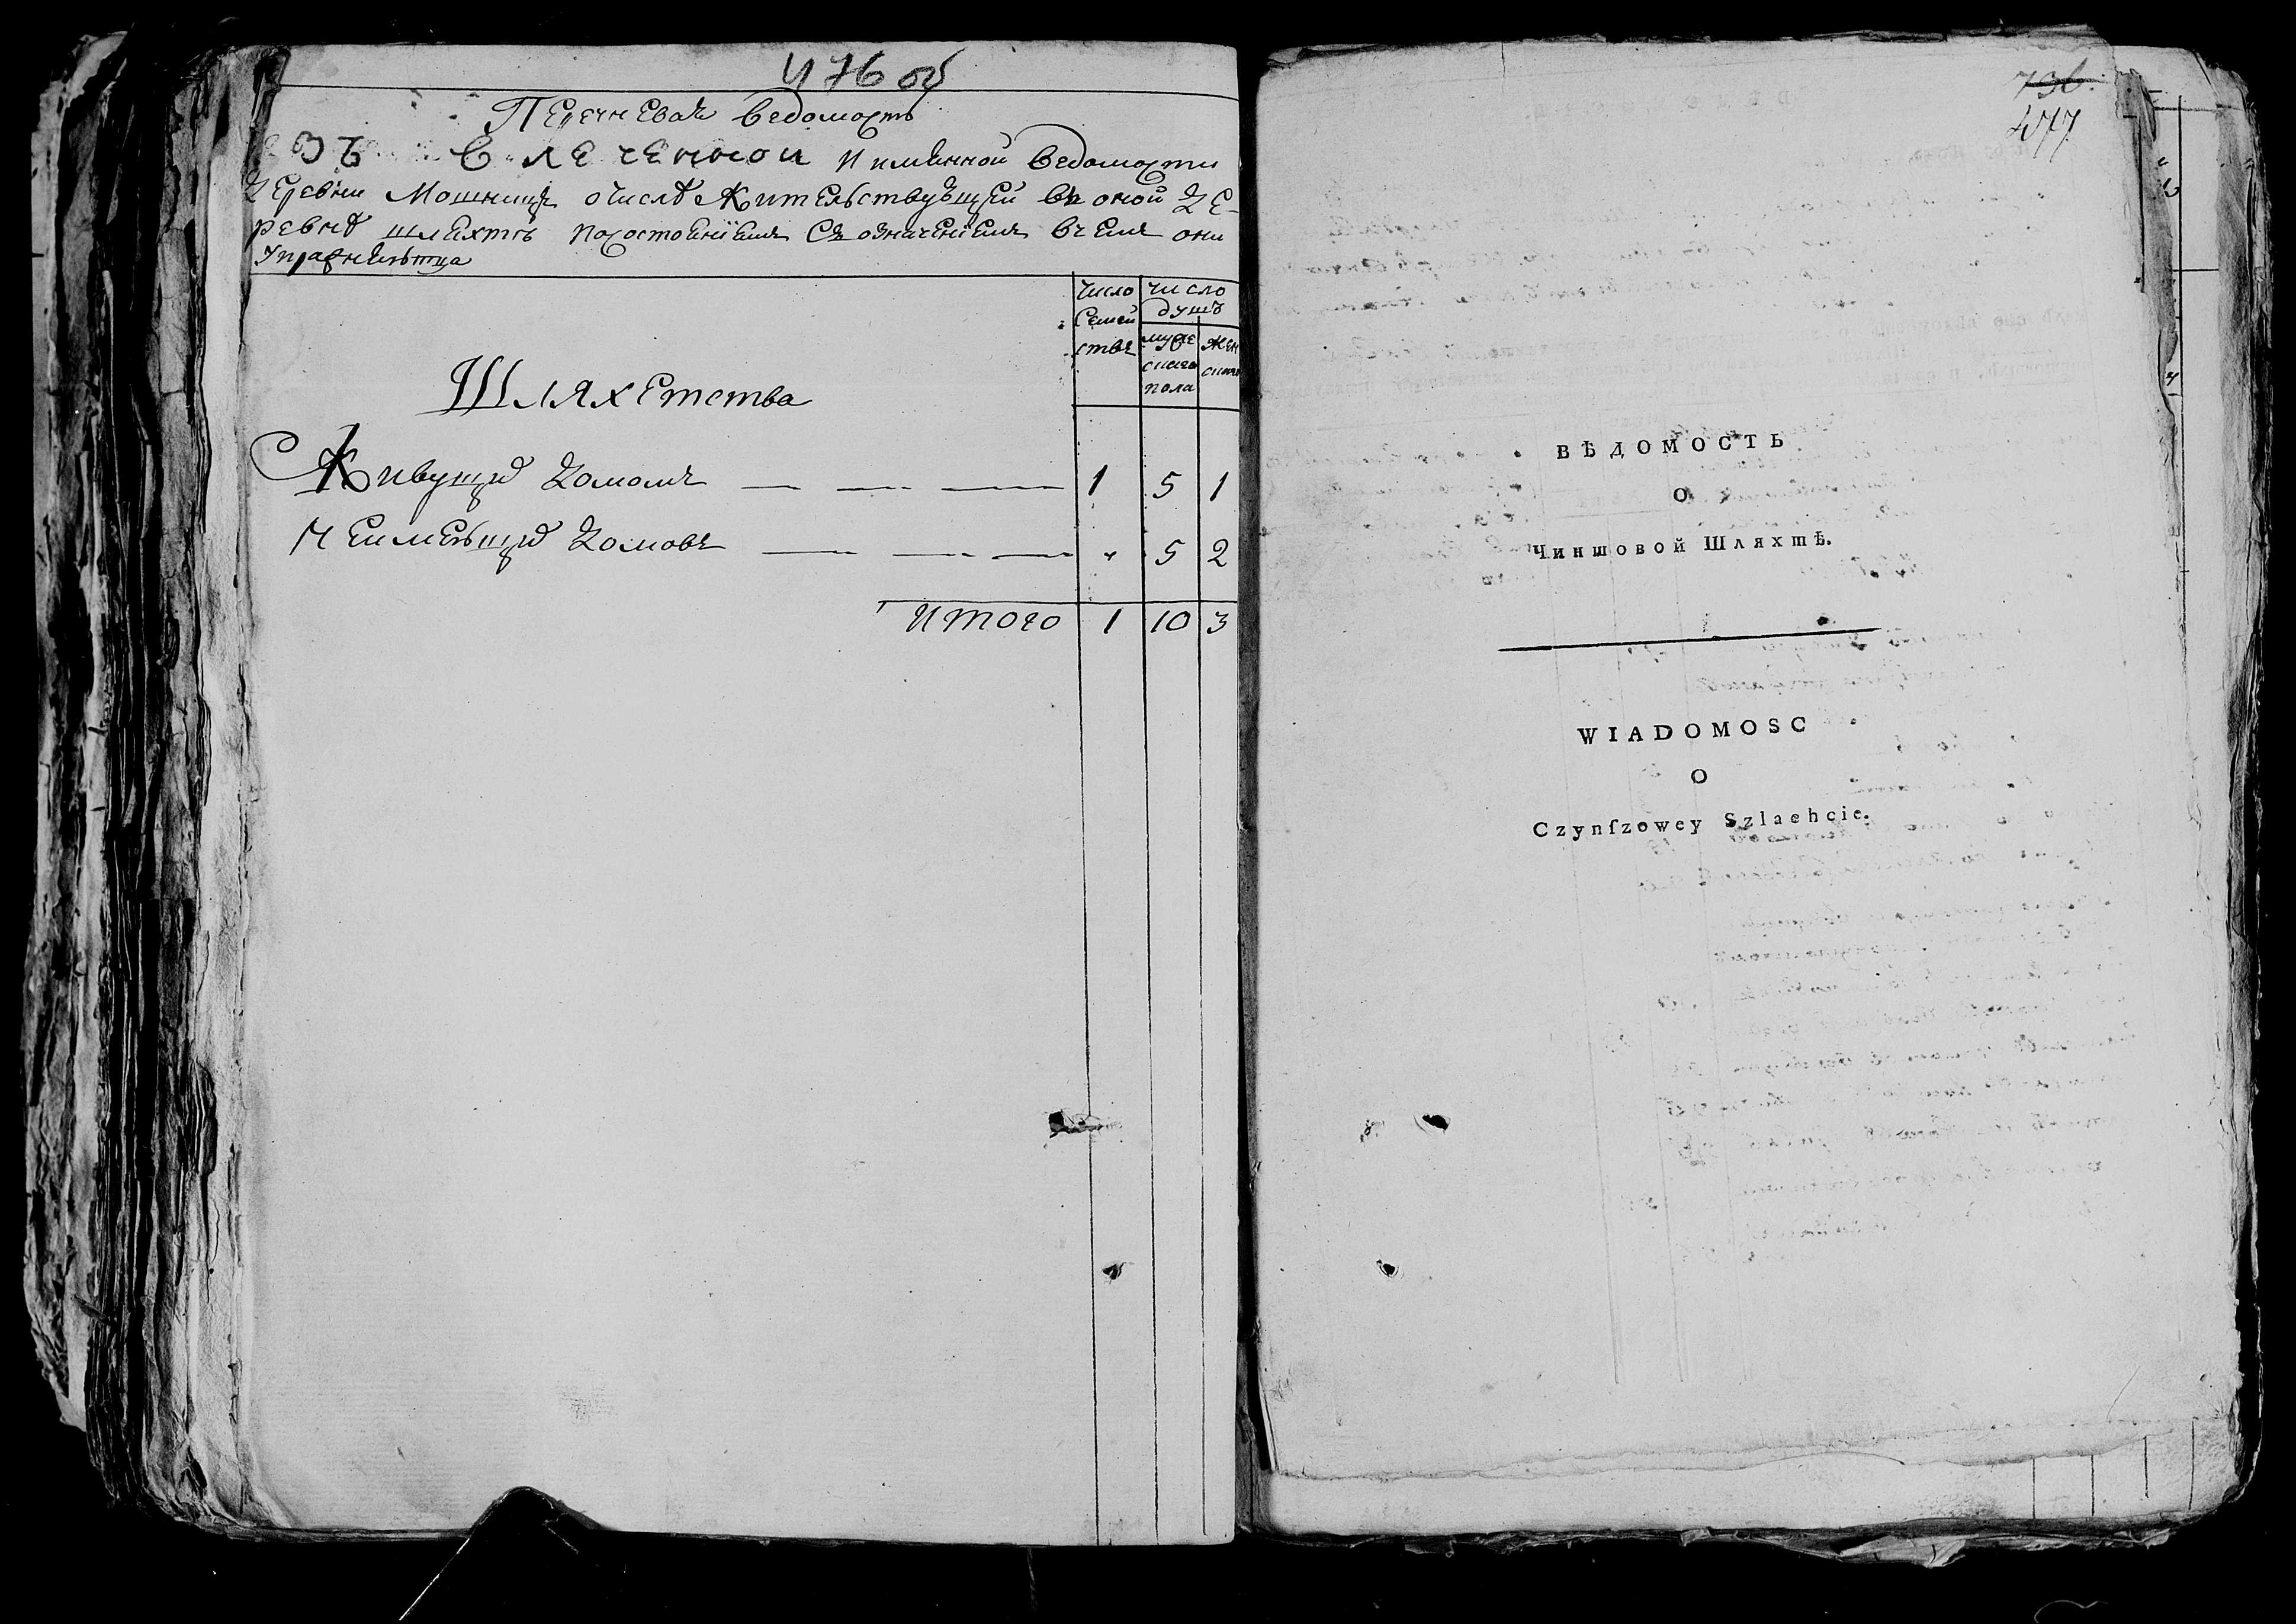 476 об
Перечневая ведомость
изъ в леченной имянной ведомости
деревни Мошниць о числѣ жительствующей въ оной де-
ревнѣ шляхты по состоянiямъ съ означенiемъ в чемъ они
упражняютца
число
семей
ствъ
число
душъ
мужеска
го
пола
жен
скаго
Шляхетства
Живущiе домомъ — — — 1 5 1
Неимеющiе домовъ — — — " 5 2
итого 1 10 3
477
ВѢДОМОСТЬ
О
Чиншовой Шляхтѣ.
WIADOMOSC
O
Czynſzowey Szlachcie.